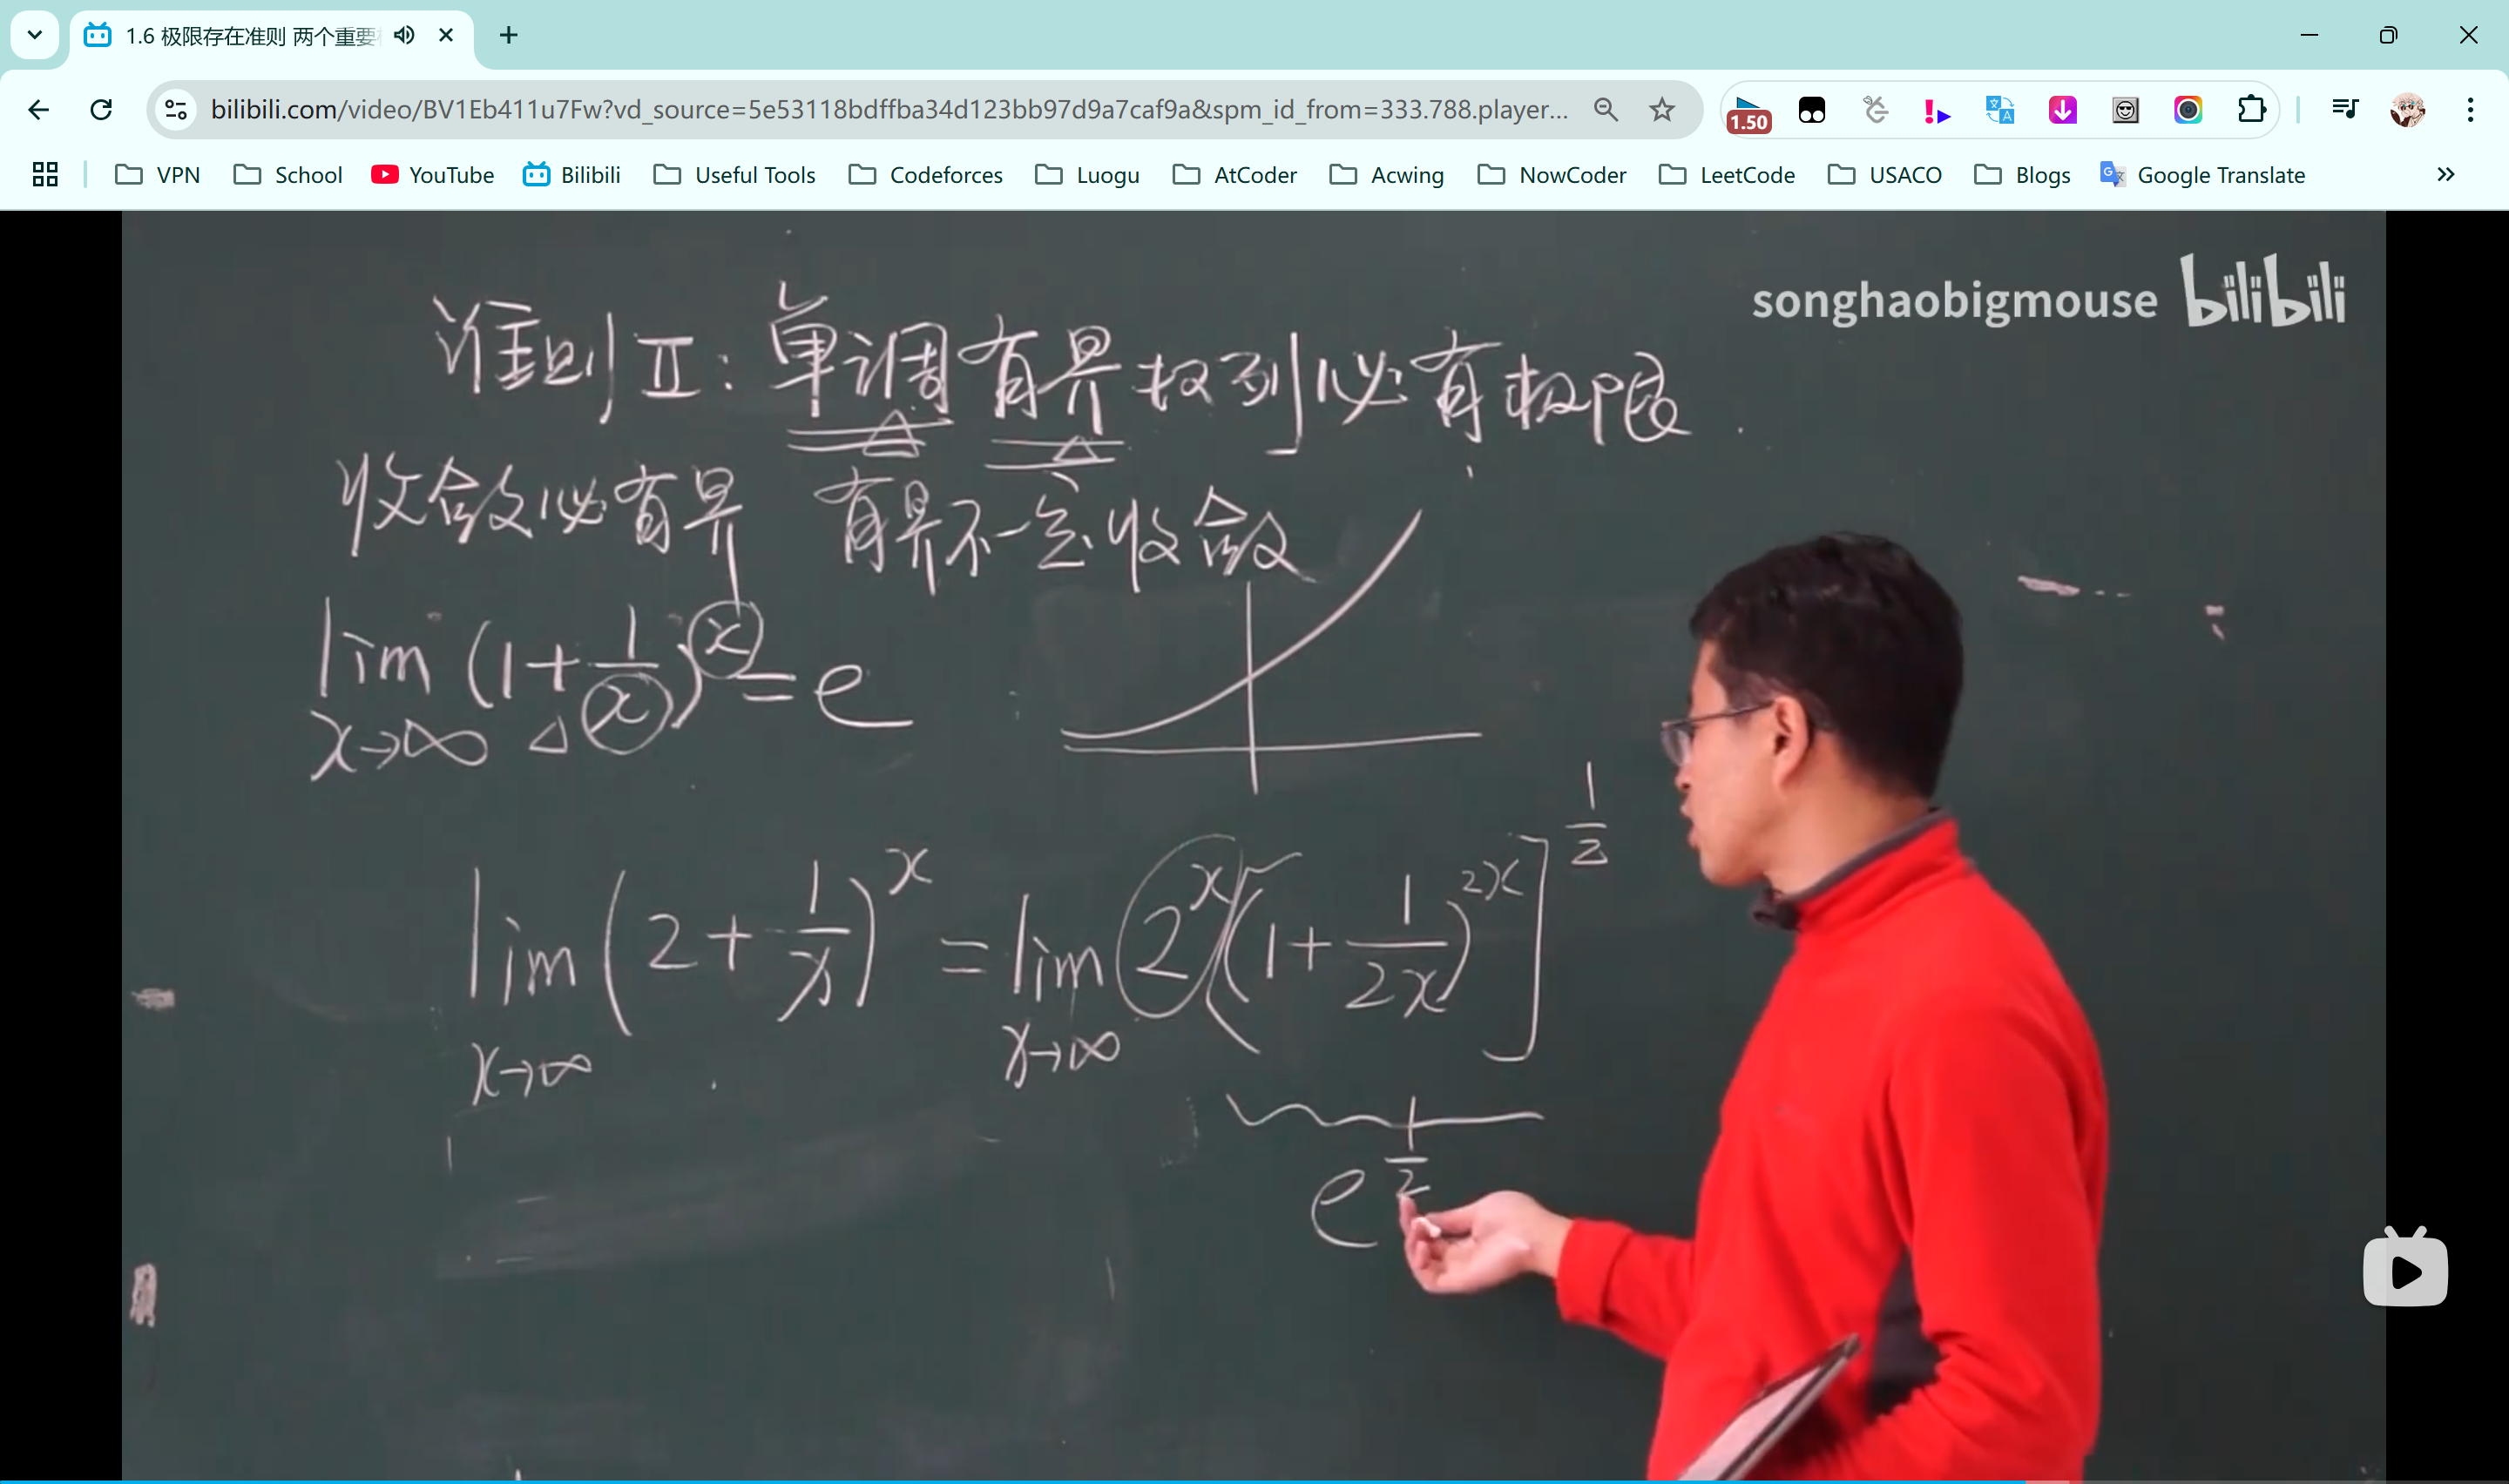 1.6 极限存在准则 两个重要
bilibili.com/video/BV1Eb411u7Fw?vd_source=5e53118bdffba34d123bb97d9a7caf9a&spm_id_from=333.788.player...
1.50
VPN School YouTube Bilibili Useful Tools Codeforces Luogu AtCoder Acwing NowCoder LeetCode USACO Blogs Google Translate
songhaobigmouse bilibili
准则Ⅱ:单调有界数列必有极限.
收敛必有界 有界不一定收敛
lim x→∞ (1+1/x)^x = e
lim x→∞ (2+1/x)^x = lim x→∞ 2^x [(1+1/2x)^2x]^1/2
e^1/2